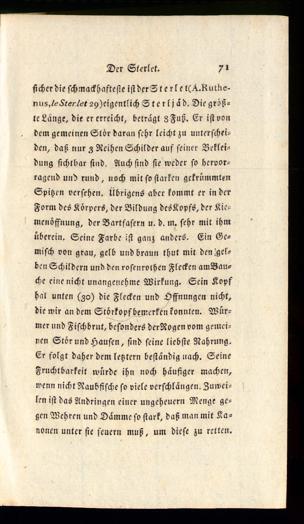 Der Sterlet. 71
sicher die schmackhafteste ist der Sterlet (A. Ruthe-
nus, le Sterlet 29) eigentlich Sterljäd. Die größ-
te Länge, die er erreicht, beträgt 8 Fuß. Er ist von
dem gemeinen Stör daran sehr leicht zu unterschei-
den, daß nur 3 Reihen Schilder auf seiner Beklei-
dung sichtbar sind. Auch sind sie weder so hervor-
ragend und rund, noch mit so starken gekrümmten
Spitzen versehen. Übrigens aber kommt er in der
Form des Körpers, der Bildung des Kopfs, der Kie-
menöffnung, der Bartfasern u. d. m. sehr mit ihm
überein. Seine Farbe ist ganz anders. Ein Ge-
misch von grau, gelb und braun thut mit den gel-
ben Schildern und den rosenrothen Flecken am Bau-
che eine nicht unangenehme Wirkung. Sein Kopf
hat unten (30) die Flecken und Öffnungen nicht,
die wir an dem Störkopf bemerken konnten. Wür-
mer und Fischbrut, besonders der Rogen vom gemei-
nen Stör und Hausen, sind seine liebste Nahrung.
Er folgt daher dem letztern beständig nach. Seine
Fruchtbarkeit würde ihn noch häufiger machen,
wenn nicht Raubfische so viele verschlängen. Zuwei-
len ist das Andringen einer ungeheuern Menge ge-
gen Wehren und Dämme so stark, daß man mit Ka-
nonen unter sie feuern muß, um diese zu retten.